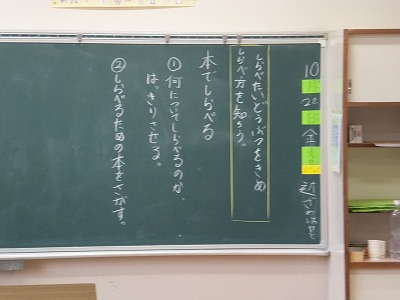 10月22日金
しらべたいどうぶつをきめ
しらべ方を知ろう。
本でしらべる
①何についてしらべるのか、
はっきりさせる。
②しらべるための本をさがす。